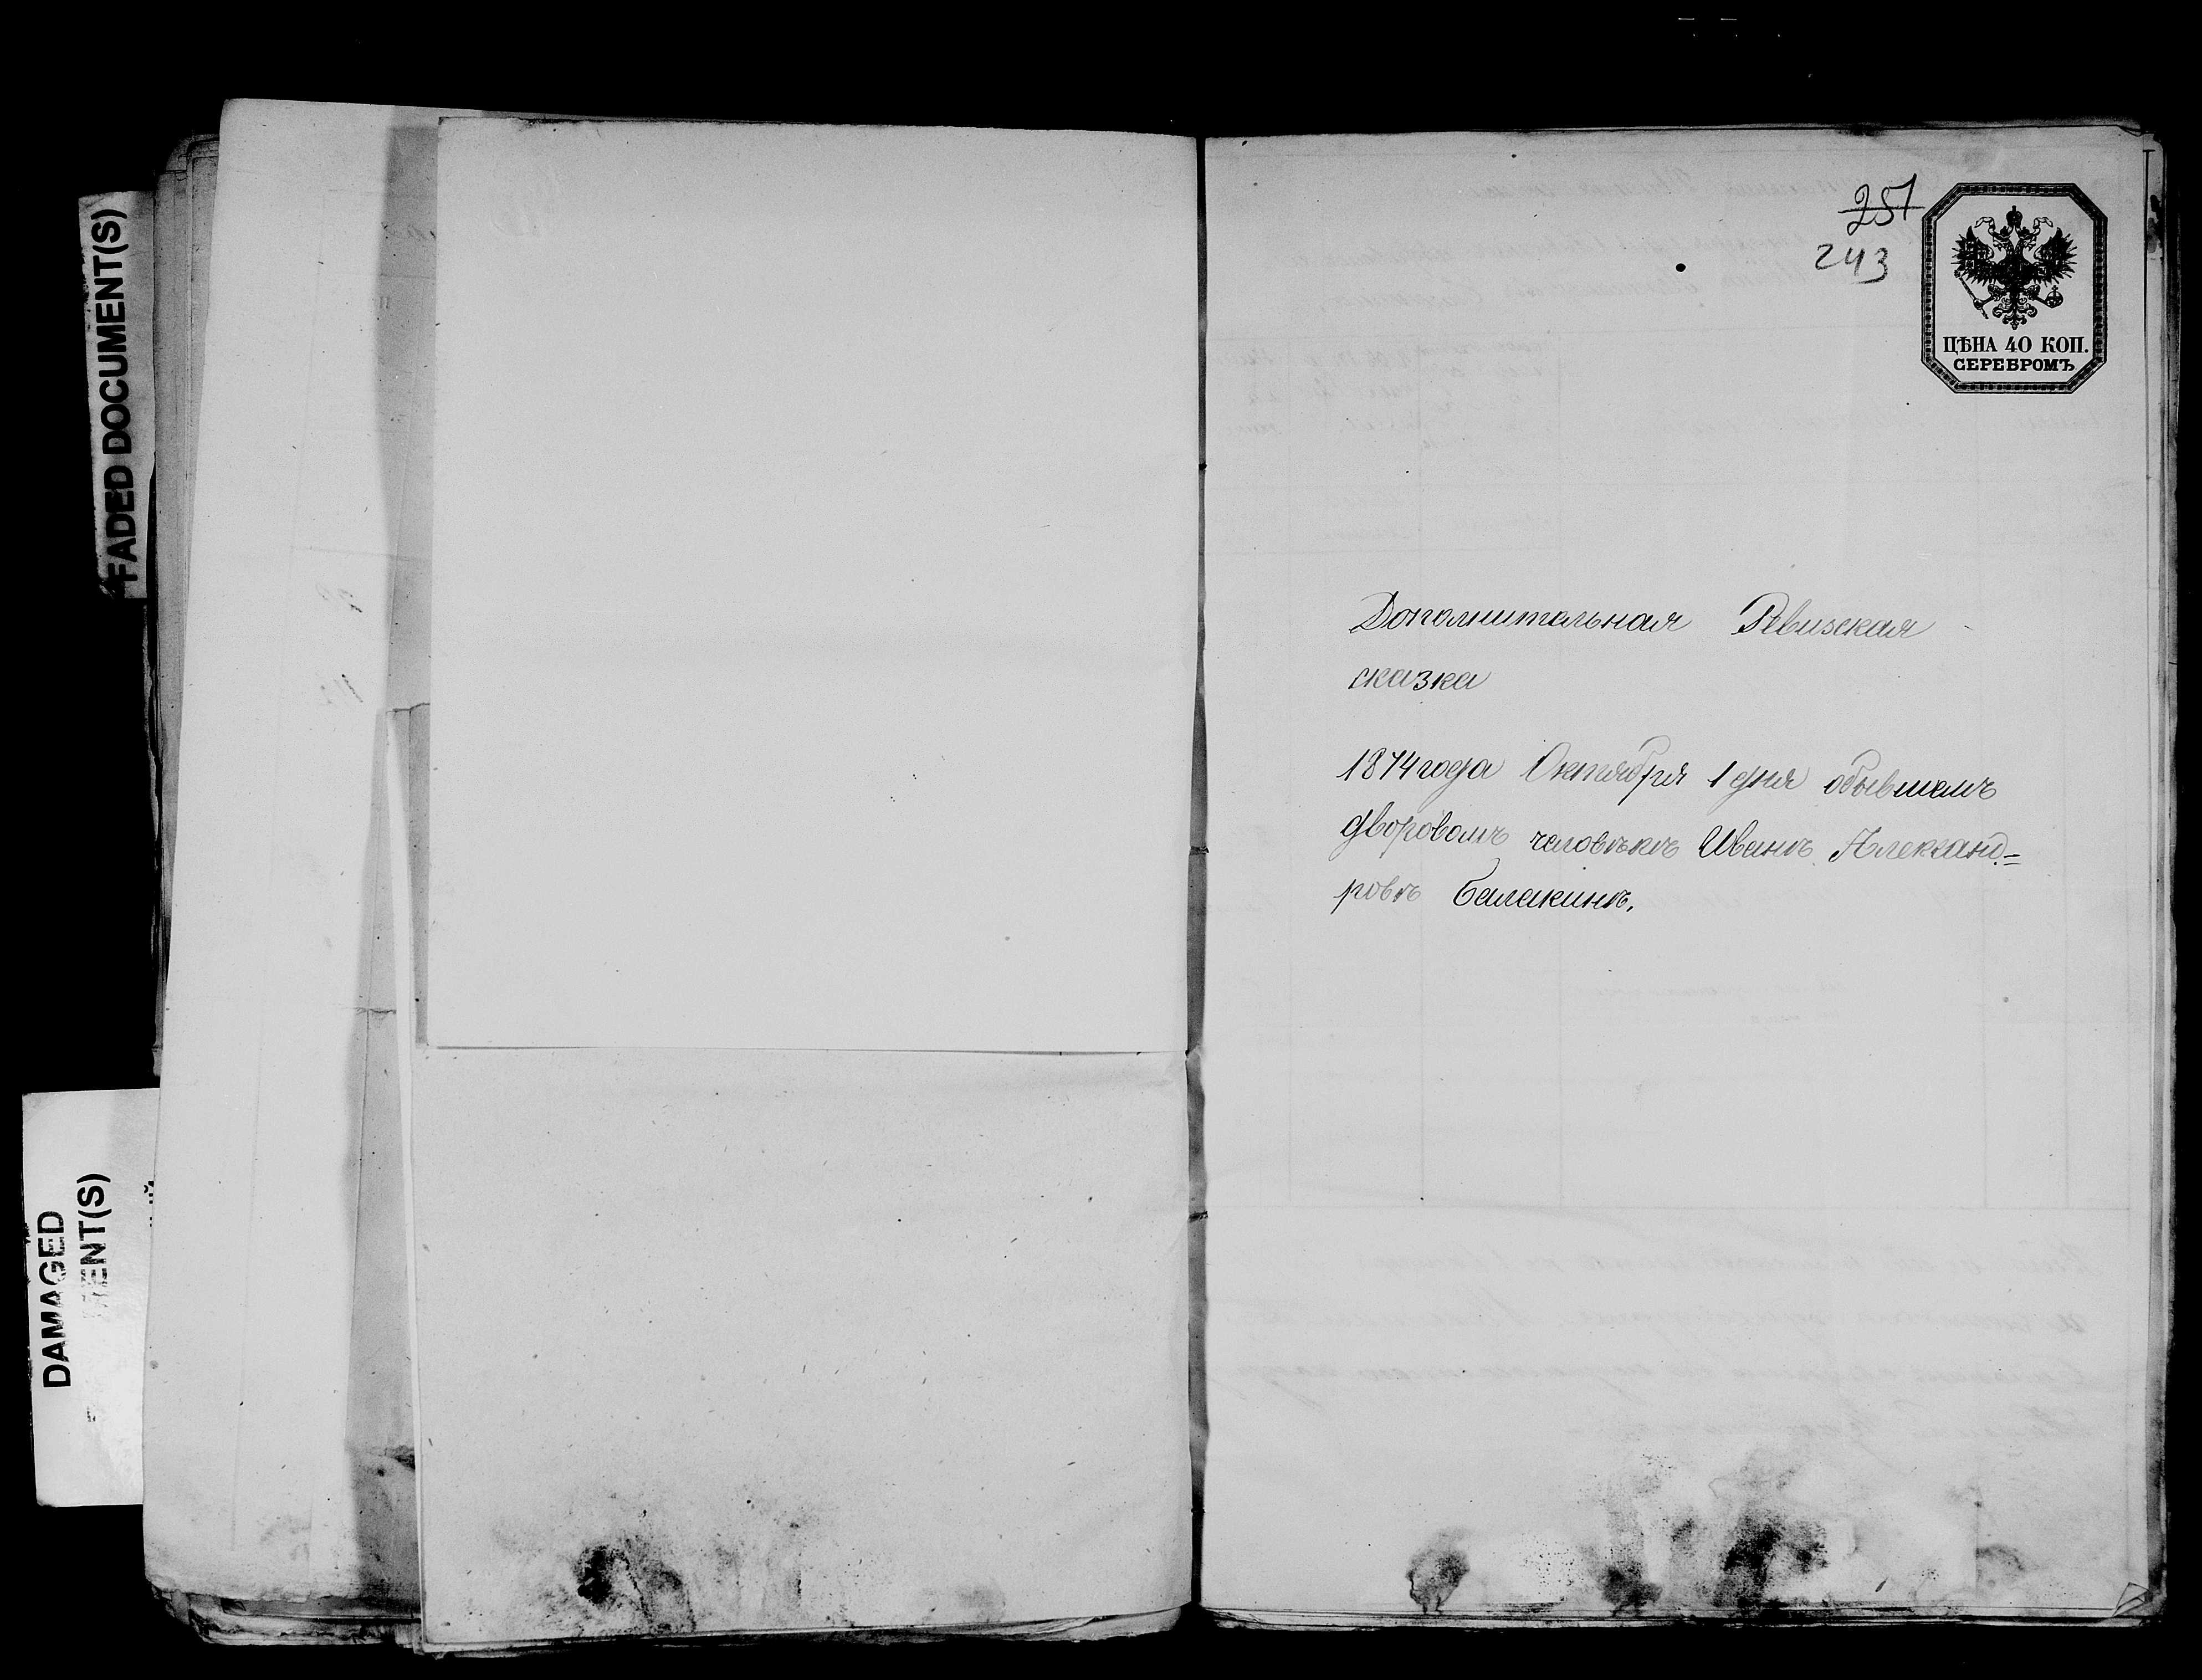 FADED DOCUMENT(S)
DAMAGED
MENT(S)
251
243
ЦѢНА 40 КОП.
СЕРЕБРОМЪ
Дополнительная Ревизская
сказка
1874 года Октября 1 дня обывшемъ
дворовомъ человѣкѣ Иванѣ Александ=
ровѣ Балакинѣ.